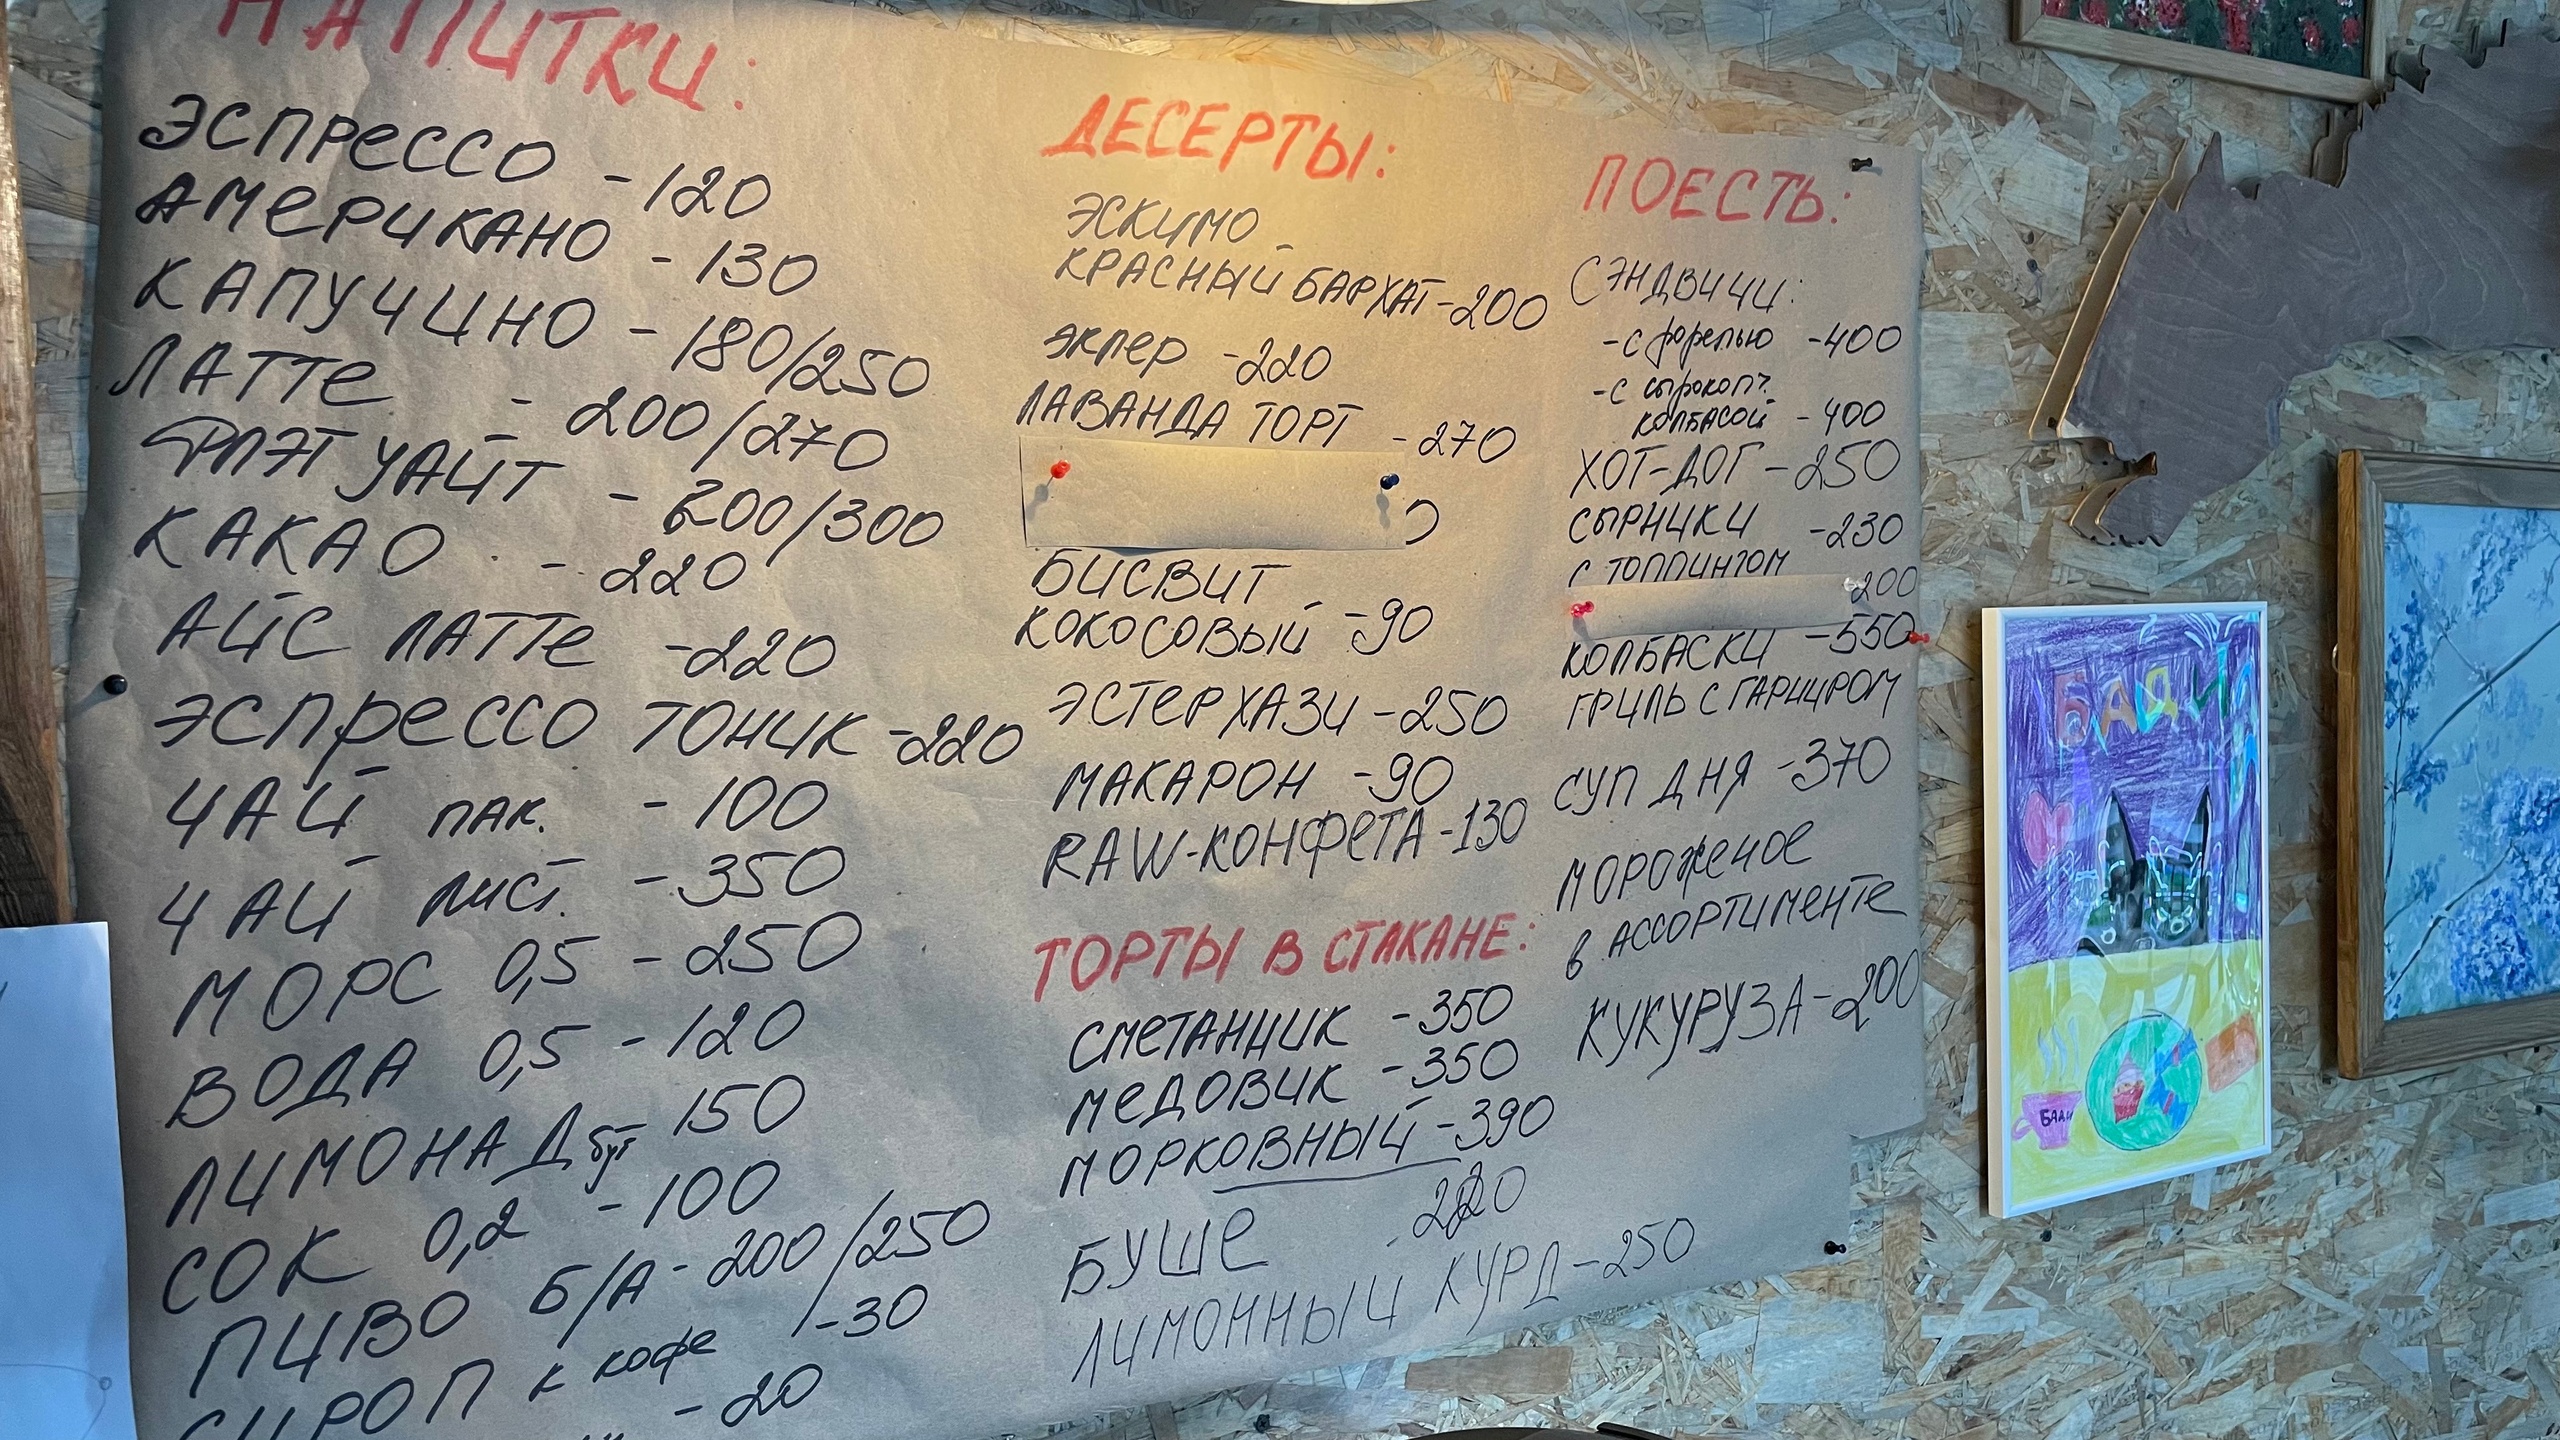 НАПИТКИ:
ЭСПРЕССО - 120
АМЕРИКАНО - 130
КАПУЧИНО - 180/250
ЛАТТЕ - 200/270
ФЛЭТ УАЙТ - 200/300
КАКАО - 220
АЙС ЛАТТЕ - 220
ЭСПРЕССО ТОНИК - 220
ЧАЙ ПАК. - 100
ЧАЙ ЛИСТ. - 350
МОРС 0,5 - 250
ВОДА 0,5 - 120
ЛИМОНАД бут 150
СОК 0,2 - 100
ПИВО Б/А - 200/250
СИРОП к кофе - 30
- 20
ДЕСЕРТЫ:
ЭСКИМО
КРАСНЫЙ БАРХАТ - 200
ЭКЛЕР - 220
ЛАВАНДА ТОРТ - 270
БИСВИТ
КОКОСОВЫЙ - 90
ЭСТЕРХАЗИ - 250
МАКАРОН - 90
RAW-КОНФЕТА - 130
ТОРТЫ В СТАКАНЕ:
СМЕТАННИК - 350
МЕДОВИК - 350
МОРКОВНЫЙ - 390
БУШЕ 220
ЛИМОННЫЙ КУРД - 250
ПОЕСТЬ:
СЭНДВИЧИ:
- с форелью - 400
- с сырокопч.
колбасой - 400
ХОТ-ДОГ - 250
СЫРНИКИ - 230
С ТОППИНГОМ
200
КОЛБАСКИ - 550
ГРИЛЬ С ГАРНИРОМ
СУП ДНЯ - 370
МОРОЖЕНОЕ
В АССОРТИМЕНТЕ
КУКУРУЗА - 200
БАДИ